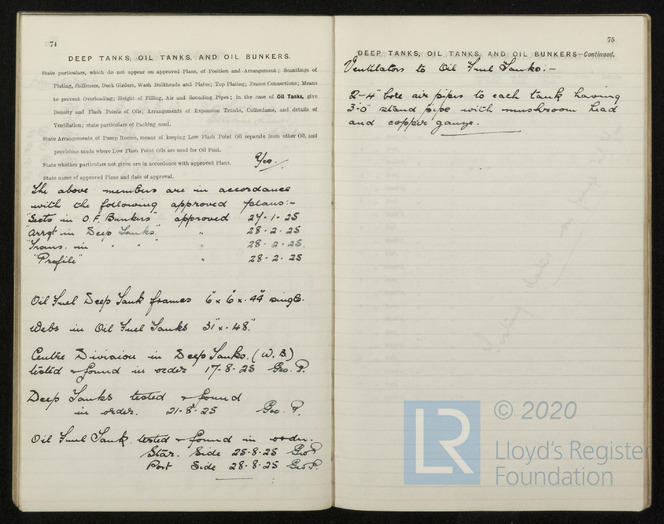 74
DEEP TANKS, OIL TANKS, AND OIL BUNKERS.
State particulars, which do not appear on approved Plans, of Position and Arrangement; Scantlings of
Plating, Stiffeners, Deck Girders, Wash Bulkheads and Plates; Top Plating; Frame Connections; Means
to prevent Overloading; Height of Filling, Air and Sounding Pipes; in the case of Oil Tanks, give
Density and Flash Points of Oils; Arrangements of Expansion Trunks, Cofferdams, and details of
Ventilation; state particulars of Packing used.
State Arrangements of Pump Rooms, means of keeping Low Flash Point Oil separate from other Oil, and
precautions made where Low Flash Point Oils are used for Oil Fuel.
State whether particulars not given are in accordance with approved Plans.
State name of approved Plans and date of approval.
The above members are in accordance
with the following approved plans:-
"Sects in O.F. Bunkers" approved 27.1.25
"Arrgt in Deep Tanks" " 28.2.25
"Trans. in " " " 28.2.25
"Profile" " 28.2.25
Oil Fuel Deep Tank frames 6 x 6 x .44 angle.
Webs in Oil Fuel Tanks 31" x .48"
Centre Division in Deep Tanks. (W.B)
tested & found in order 17.8.25 Geo. P.
Deep Tanks tested & found
in order. 21.8.25 Geo. P.
Oil Fuel Tank tested & found in order.
Star. Side 25.8.25 Geo P
Port Side 28.8.25 Geo P
75
DEEP TANKS, OIL TANKS, AND OIL BUNKERS—Continued.
Ventilators to Oil Fuel Tanks:-
2-4" bore air pipes to each tank having
3'0" stand pipe with mushroom head
and copper gauze.
LR © 2020
Lloyd's Register
Foundation